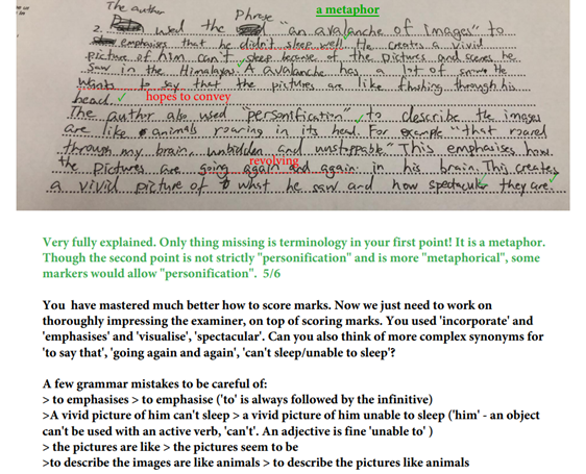 The author Phrase a metaphor
2. used the "an avalanche of images" to
emphasises that he didn't sleep well. He creates a vivid
picture of him can't sleep because of the pictures and scenes he
saw in the Himalayas. A avalanche has a lot of snow. He
wants to say that the pictures are like through his
head. hopes to convey
The author also used "personification" to describe the images
are like animals roaring in its head. For example "that roared
through my brain, unbidden and unstoppable." This emphasises how
revolving
the pictures are going again and again in his brain. This creates
a vivid picture of what he saw and how spectacular they are.
Very fully explained. Only thing missing is terminology in your first point! It is a metaphor.
Though the second point is not strictly "personification" and is more "metaphorical", some
markers would allow "personification". 5/6
You have mastered much better how to score marks. Now we just need to work on
thoroughly impressing the examiner, on top of scoring marks. You used 'incorporate' and
'emphasises' and 'visualise', 'spectacular'. Can you also think of more complex synonyms for
'to say that', 'going again and again', 'can't sleep/unable to sleep'?
A few grammar mistakes to be careful of:
> to emphasises > to emphasise ('to' is always followed by the infinitive)
>A vivid picture of him can't sleep > a vivid picture of him unable to sleep ('him' - an object
can't be used with an active verb, 'can't'. An adjective is fine 'unable to' )
> the pictures are like > the pictures seem to be
>to describe the images are like animals > to describe the pictures like animals